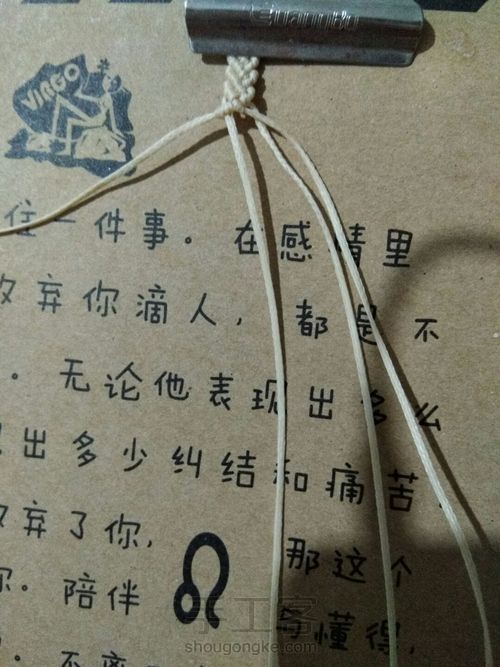 VIRGO
住一件事。在感情里
放弃你滴人,都是不
。无论他表现出多么
出多少纠结和痛苦,
放弃了你,
那这个
你。陪伴
与懂得,
手工客
shougongke.com